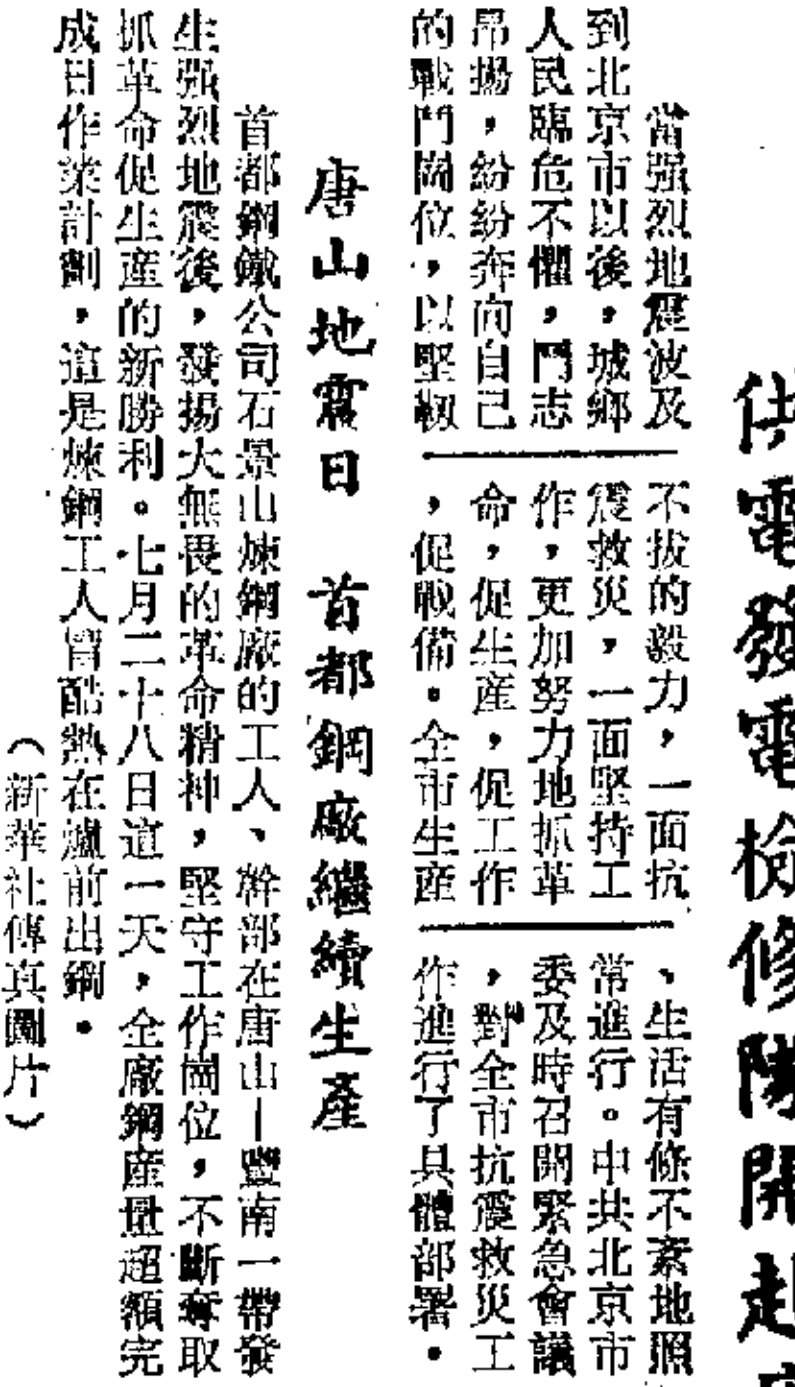 供電發電檢修隊開赴
當强烈地震波及
到北京市以後，城鄉
人民臨危不懼，鬥志
昂揚，紛紛奔向自己
的戰鬥崗位，以堅韌
不拔的毅力，一面抗
震救災，一面堅持工
作，更加努力地抓革
命，促生産，促工作
，促戰備。全市生産
、生活有條不紊地照
常進行。中共北京市
委及時召開緊急會議
，對全市抗震救災工
作進行了具體部署。
唐山地震日　首都鋼廠繼續生産
首都鋼鐵公司石景山煉鋼廠的工人、幹部在唐山—豐南一帶發
生强烈地震後，發揚大無畏的革命精神，堅守工作崗位，不斷奪取
抓革命促生産的新勝利。七月二十八日這一天，全廠鋼産量超額完
成日作業計劃，這是煉鋼工人冒酷熱在爐前出鋼。
（新華社傳真圖片）